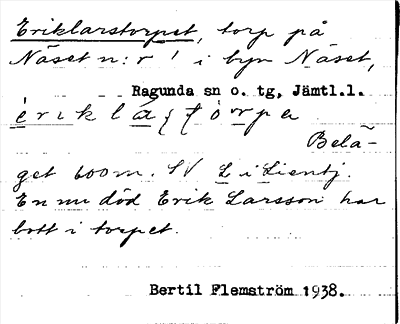 Eriklarstorpet, torp på
Näset n:r 1 i byn Näset,
Ragunda sn o. tg, Jämtl.l.
Belä-
get 600 m. SV L i Lientj.
En nu död Erik Larsson har
bott i torpet.
Bertil Flemström 1938.